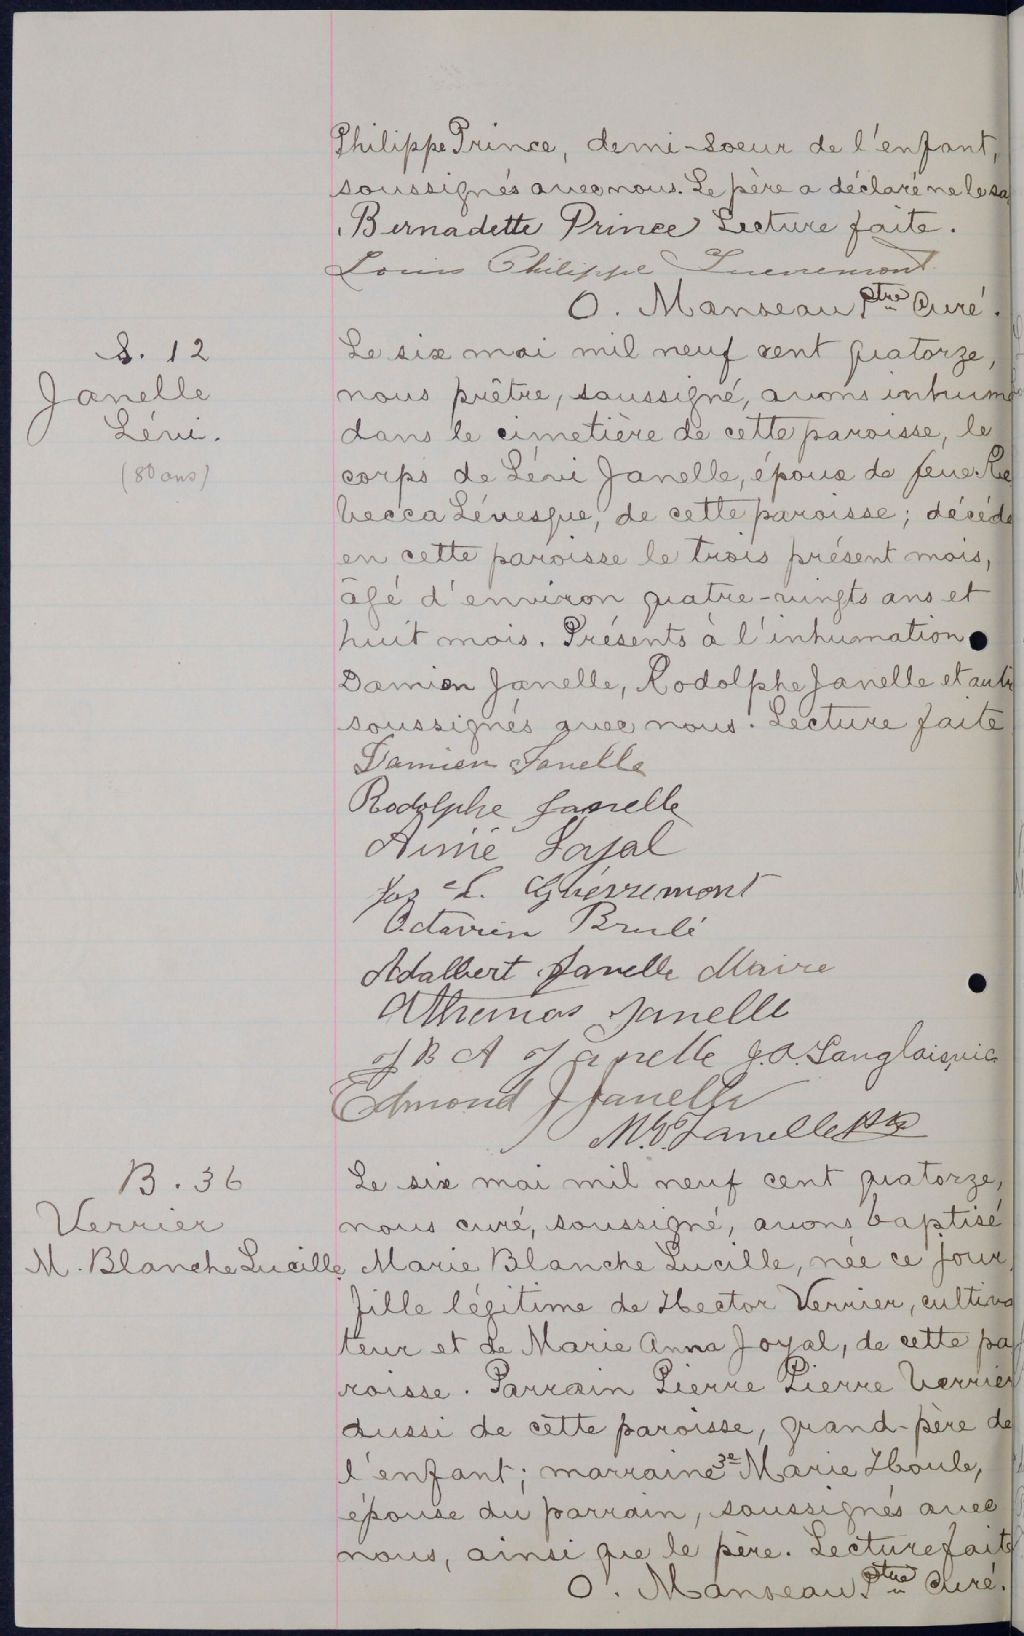 Philippe Prince, demi-soeur de l'enfant,
soussignés avec nous. Le père a déclaré ne le sa
Bernadette Prince Lecture faite.
Louis Philippe
O. Manseau Ptre Curé.
S. 12
Janelle
Lévi.
(80 ans)
Le six mai mil neuf cent quatorze,
nous prêtre, soussigné, avons inhumé
dans le cimetière de cette paroisse, le
corps de Lévi Janelle, époux de feue Re
becca Lévesque, de cette paroisse; décédé
en cette paroisse le trois présent mois,
âgé d'environ quatre-vingts ans et
huit mois. Présents à l'inhumation
Damien Janelle, Rodolphe Janelle et autr
soussignés avec nous. Lecture faite
Damien Janelle
Rodolphe Janelle
Aimé
Jos L. Guévremont
Octavien Brulé
Adalbert Janelle Maire
Athanas Janelle
J B A Janelle J.O. Langlais, vic
Edmond J Janelle
Janelle Ptre
B. 36
Verrier
M. Blanche Lucille
Le six mai mil neuf cent quatorze,
nous curé, soussigné, avons baptisé
Marie Blanche Lucille, née ce jour,
fille légitime de Hector Verrier, cultiva
teur et de Marie Anna Joyal, de cette pa
roisse. Parrain Pierre Pierre Verrier
aussi de cette paroisse, grand-père de
l'enfant; marraine Marie Houle,
épouse du parrain, soussignés avec
nous, ainsi que le père. Lecture faite
O. Manseau Ptre Curé.